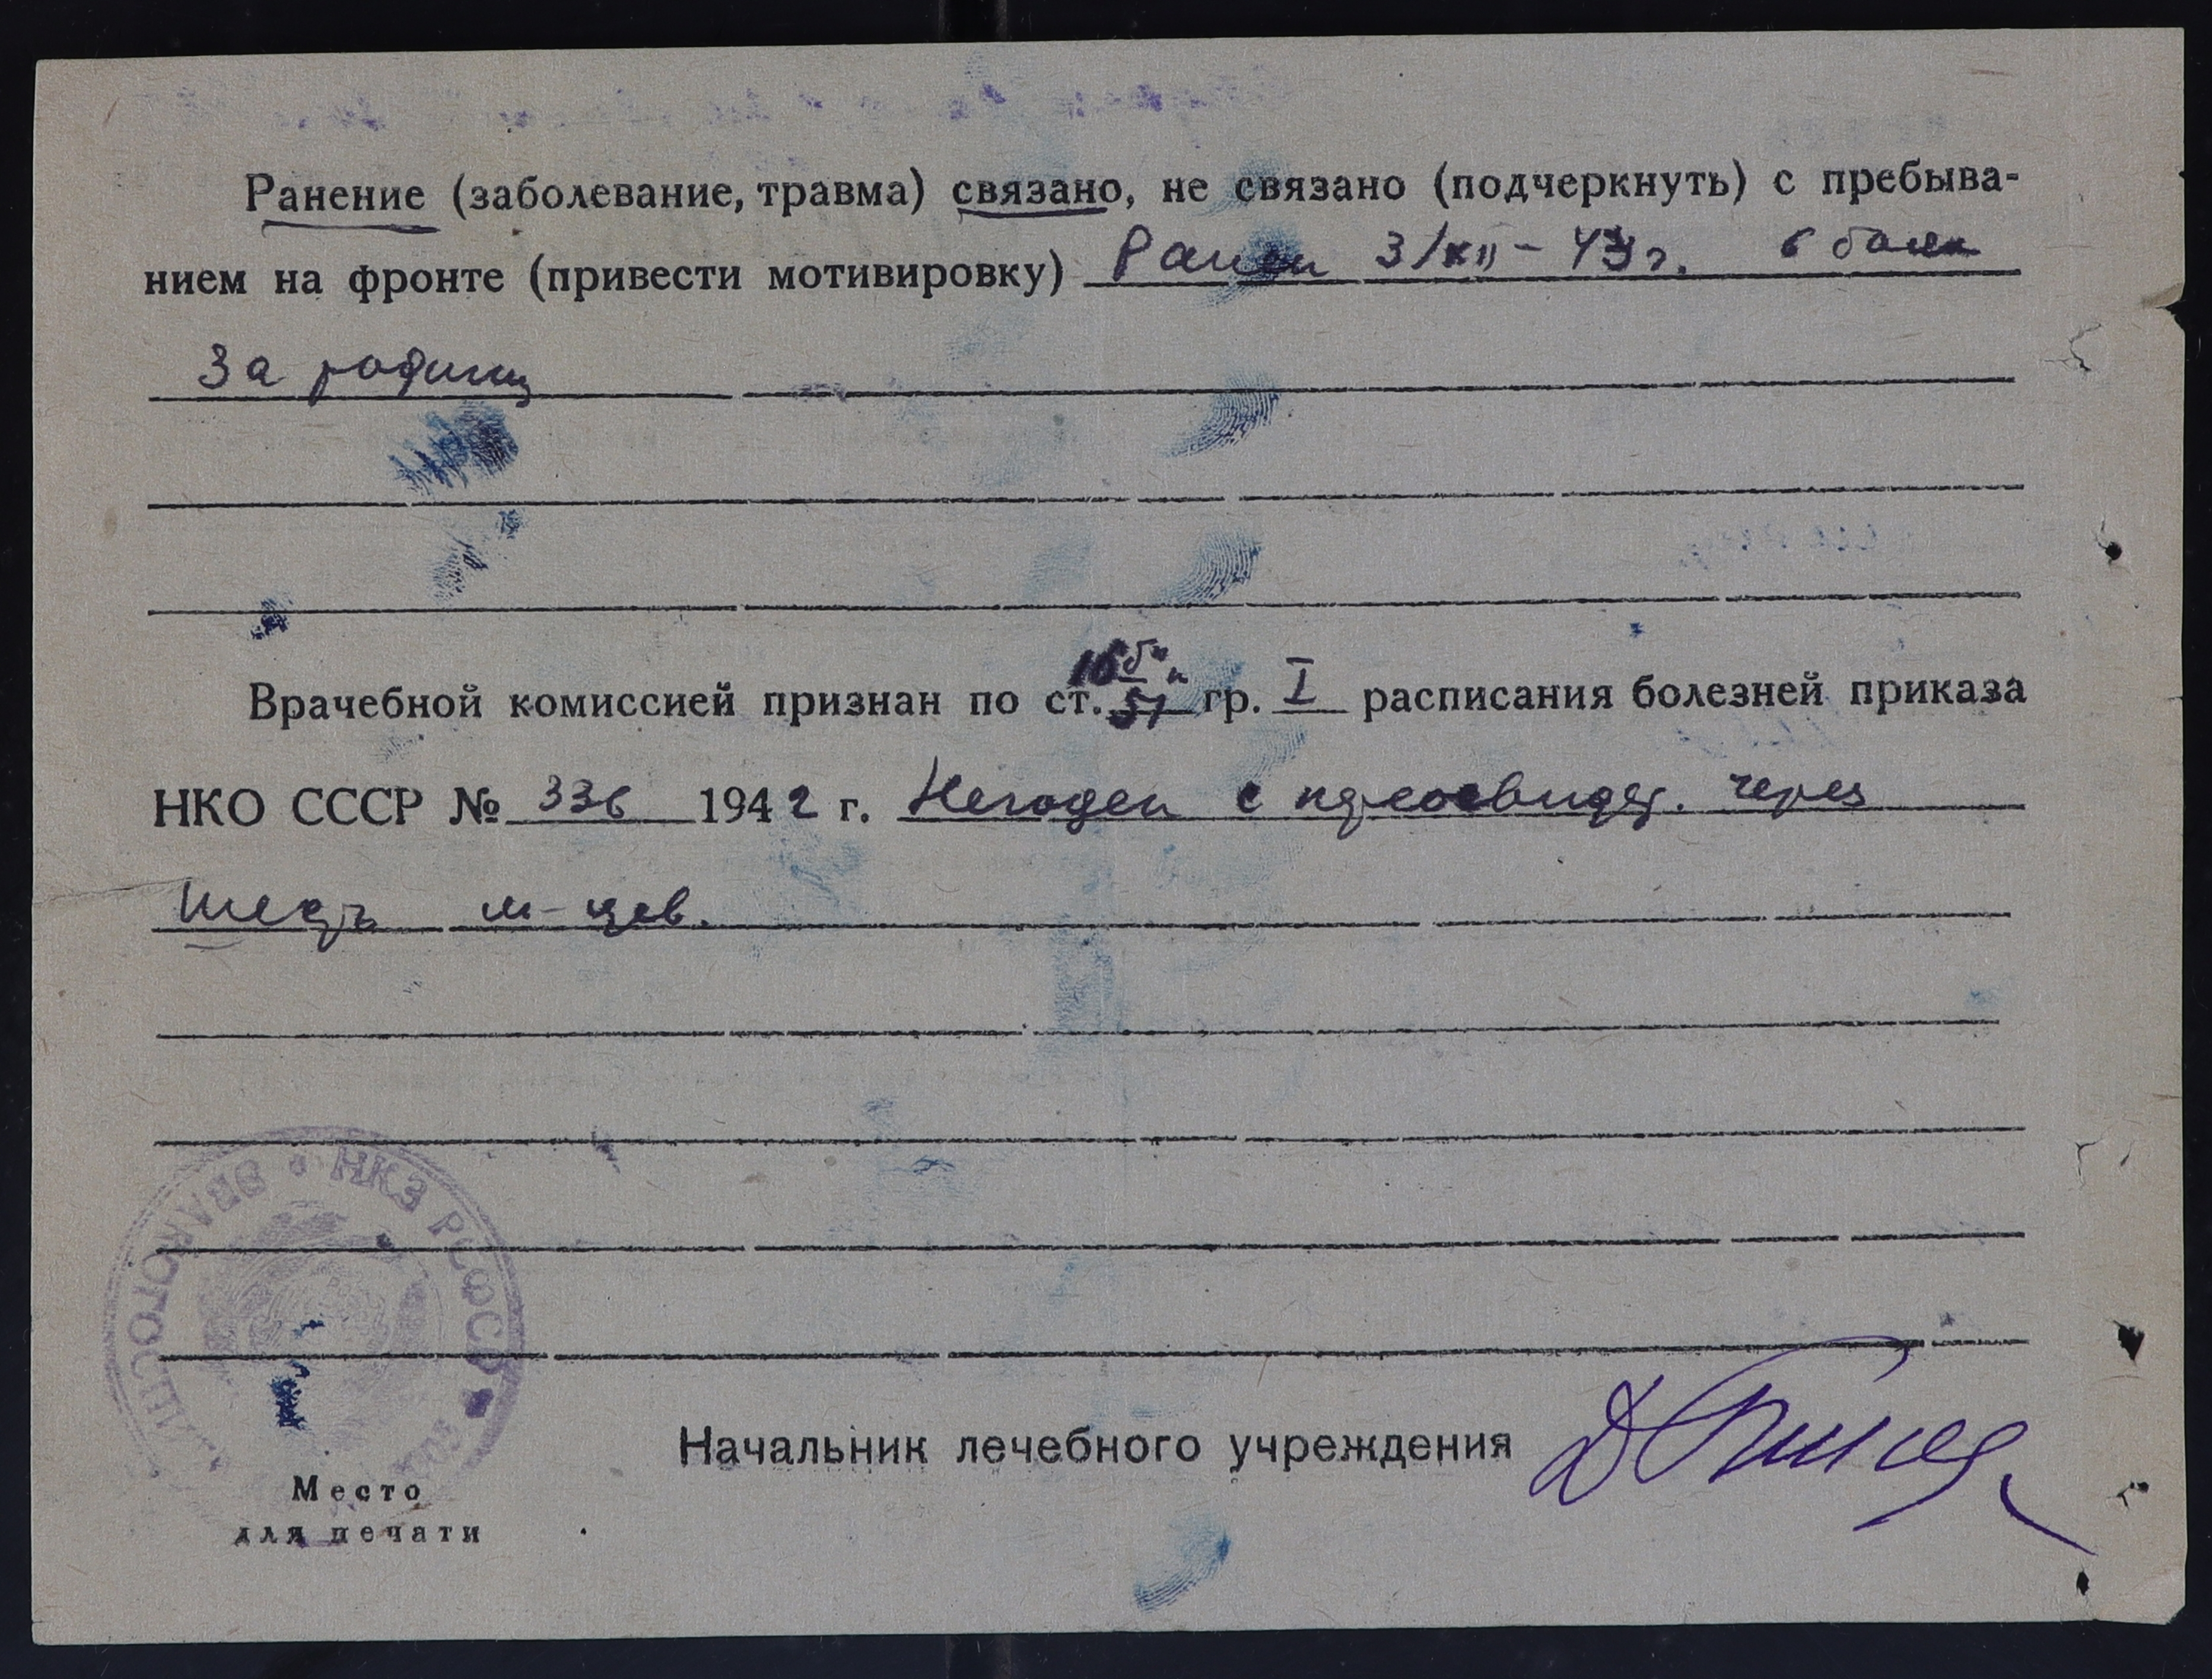 Ранение (заболевание, травма) связано, не связано (подчеркнуть) с пребыва-
нием на фронте (привести мотивировку) Ранен 3/XII – 43 г. в боях
за родину
Врачебной комиссией признан по ст. 51 гр. I расписания болезней приказа
НКО СССР № 336 1942 г. Негоден с переосвидет. через
шесть м-цев.
НКЗ РСФСР
ЭВАКОГОСПИТАЛЬ
Начальник лечебного учреждения
Место
для печати